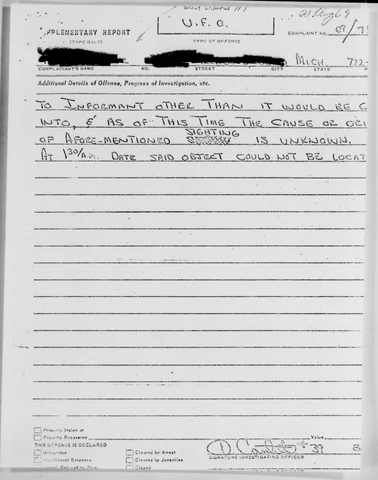 21 Aug 69
U.F.O.
PPLEMENTARY REPORT
(TYPE ONLY)
TYPE OF OFFENSE
COMPLAINT NO.
MICH. 722-
COMPLAINANT'S NAME NO. STREET CITY STATE
Additional Details of Offense, Progress of Investigation, etc.
TO INFORMANT OTHER THAN IT WOULD BE
INTO, & AS OF THIS TIME THE CAUSE OR ORI
SIGHTING
OF AFORE-MENTIONED IS UNKNOWN.
AT 130/A.M. DATE SAID OBJECT COULD NOT BE LOCAT
Property Stolen or
Property Recovered Value
THIS OFFENSE IS DECLARED
Unfounded Cleared by Arrest
SIGNATURE INVESTIGATING OFFICER
Insufficient Evidence Cleared by Juveniles
Closed
39